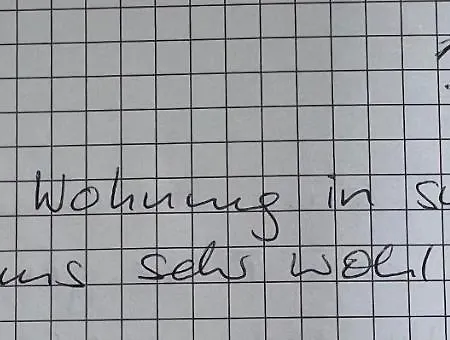 Wohnung in s
uns sehr wohl